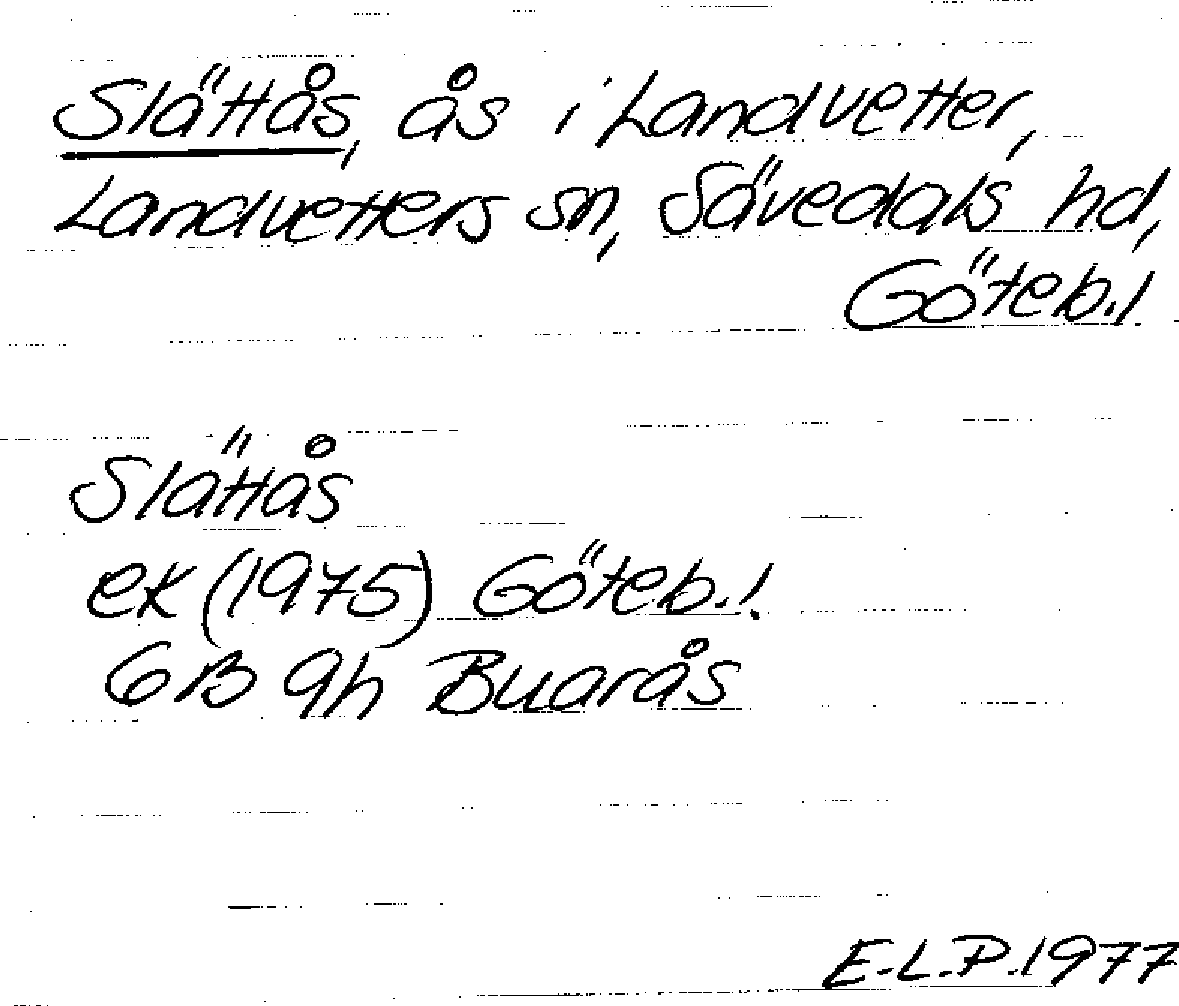 Slättås, ås i Landvetter,
Landvetters sn, Sävedals hd,
Göteb.l
Slättås
ek (1975) Göteb.l.
6B 9h Buarås
E.L.P.1977